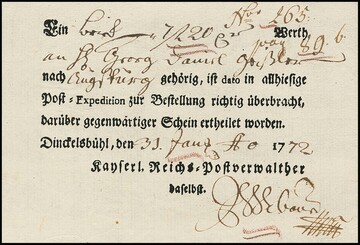 No 265.
Ein brief 7/20 Werth
pag 89. b
an H Georg Daniel
nach Augspurg gehörig, ist dato in allhiesige
Post-Expedition zur Bestellung richtig überbracht,
darüber gegenwärtiger Schein ertheilet worden.
Dinckelsbühl, den 31. Janÿ Ao 1772
Kayserl. Reichs-Postverwalther
daselbst.